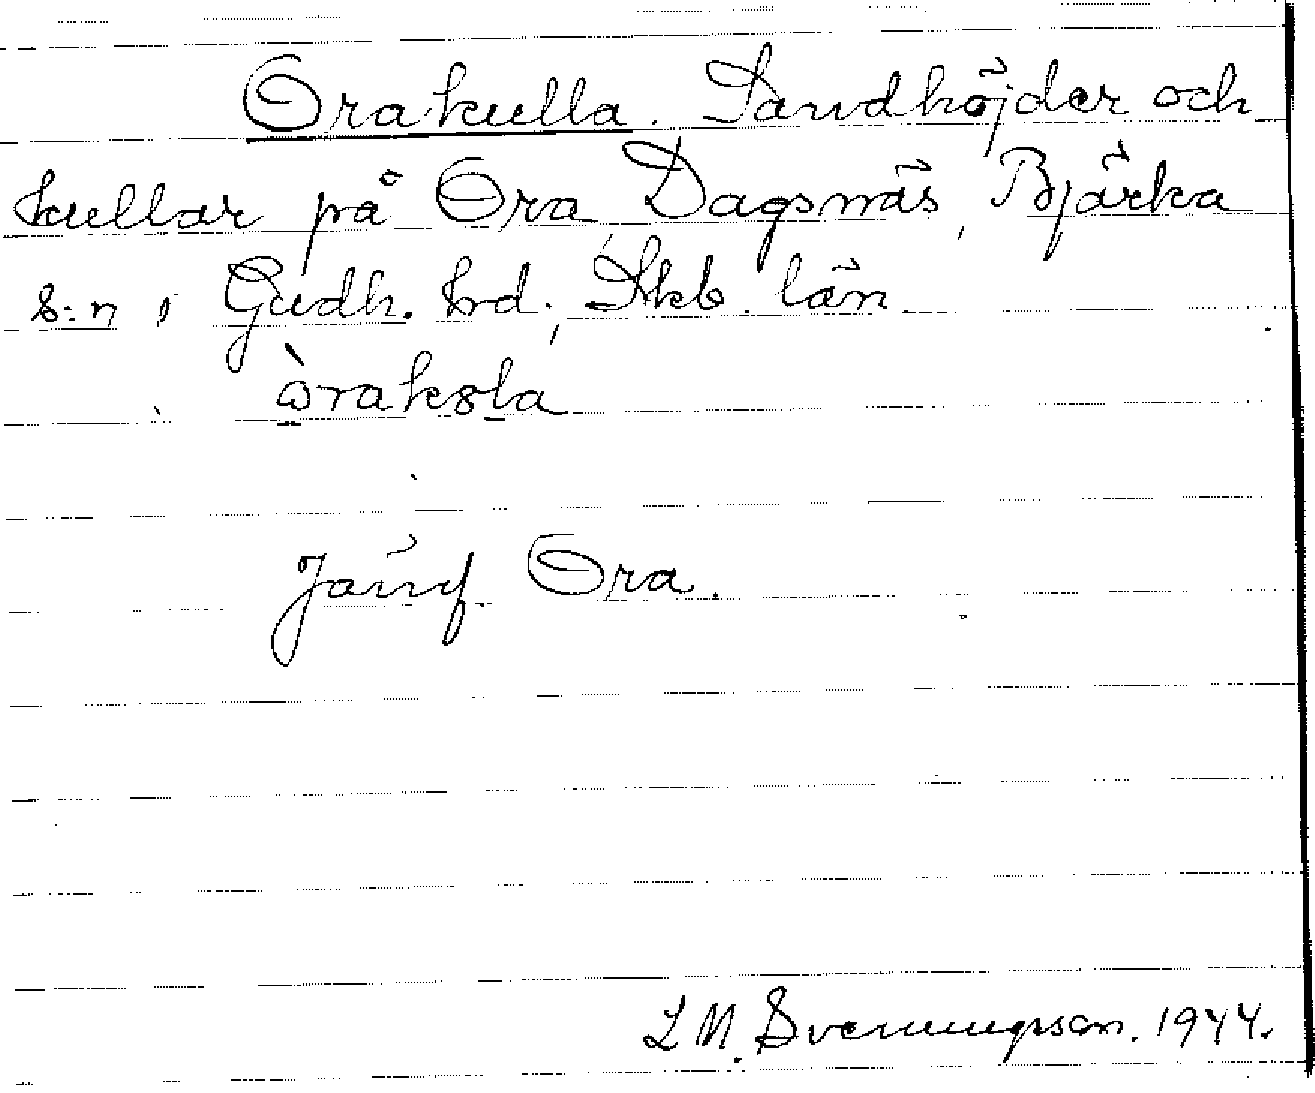 Orakulla. Sandhöjder och
kullar på Ora, Dagsnäs, Bjärka
s:n, Gudh. hrd., Skb. län.
òrakɞla
Jämf. Ora.
L M. Svenungsson. 1944.